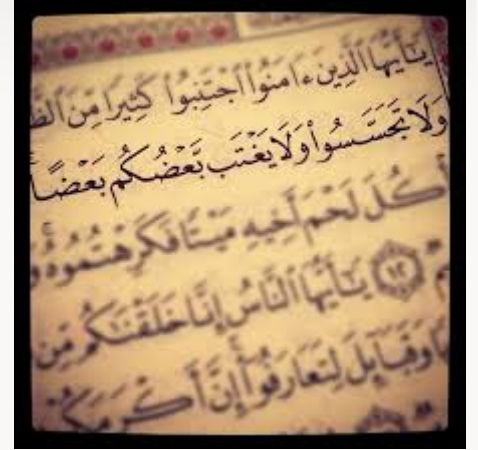 يَـٰٓأَيُّهَا ٱلَّذِينَ ءَامَنُوا۟ ٱجْتَنِبُوا۟ كَثِيرًا مِّنَ
وَلَا تَجَسَّسُوا۟ وَلَا يَغْتَب بَّعْضُكُم بَعْضًا
أَكُلَ لَحْمَ أَخِيهِ مَيْتًا فَكَرِهْتُمُوهُ وَ
١٢ يَـٰٓأَيُّهَا ٱلنَّاسُ إِنَّا خَلَقْنَـٰكُم مِّن
وَقَبَآئِلَ لِتَعَارَفُوٓا۟ إِنَّ أَكْرَمَكُمْ